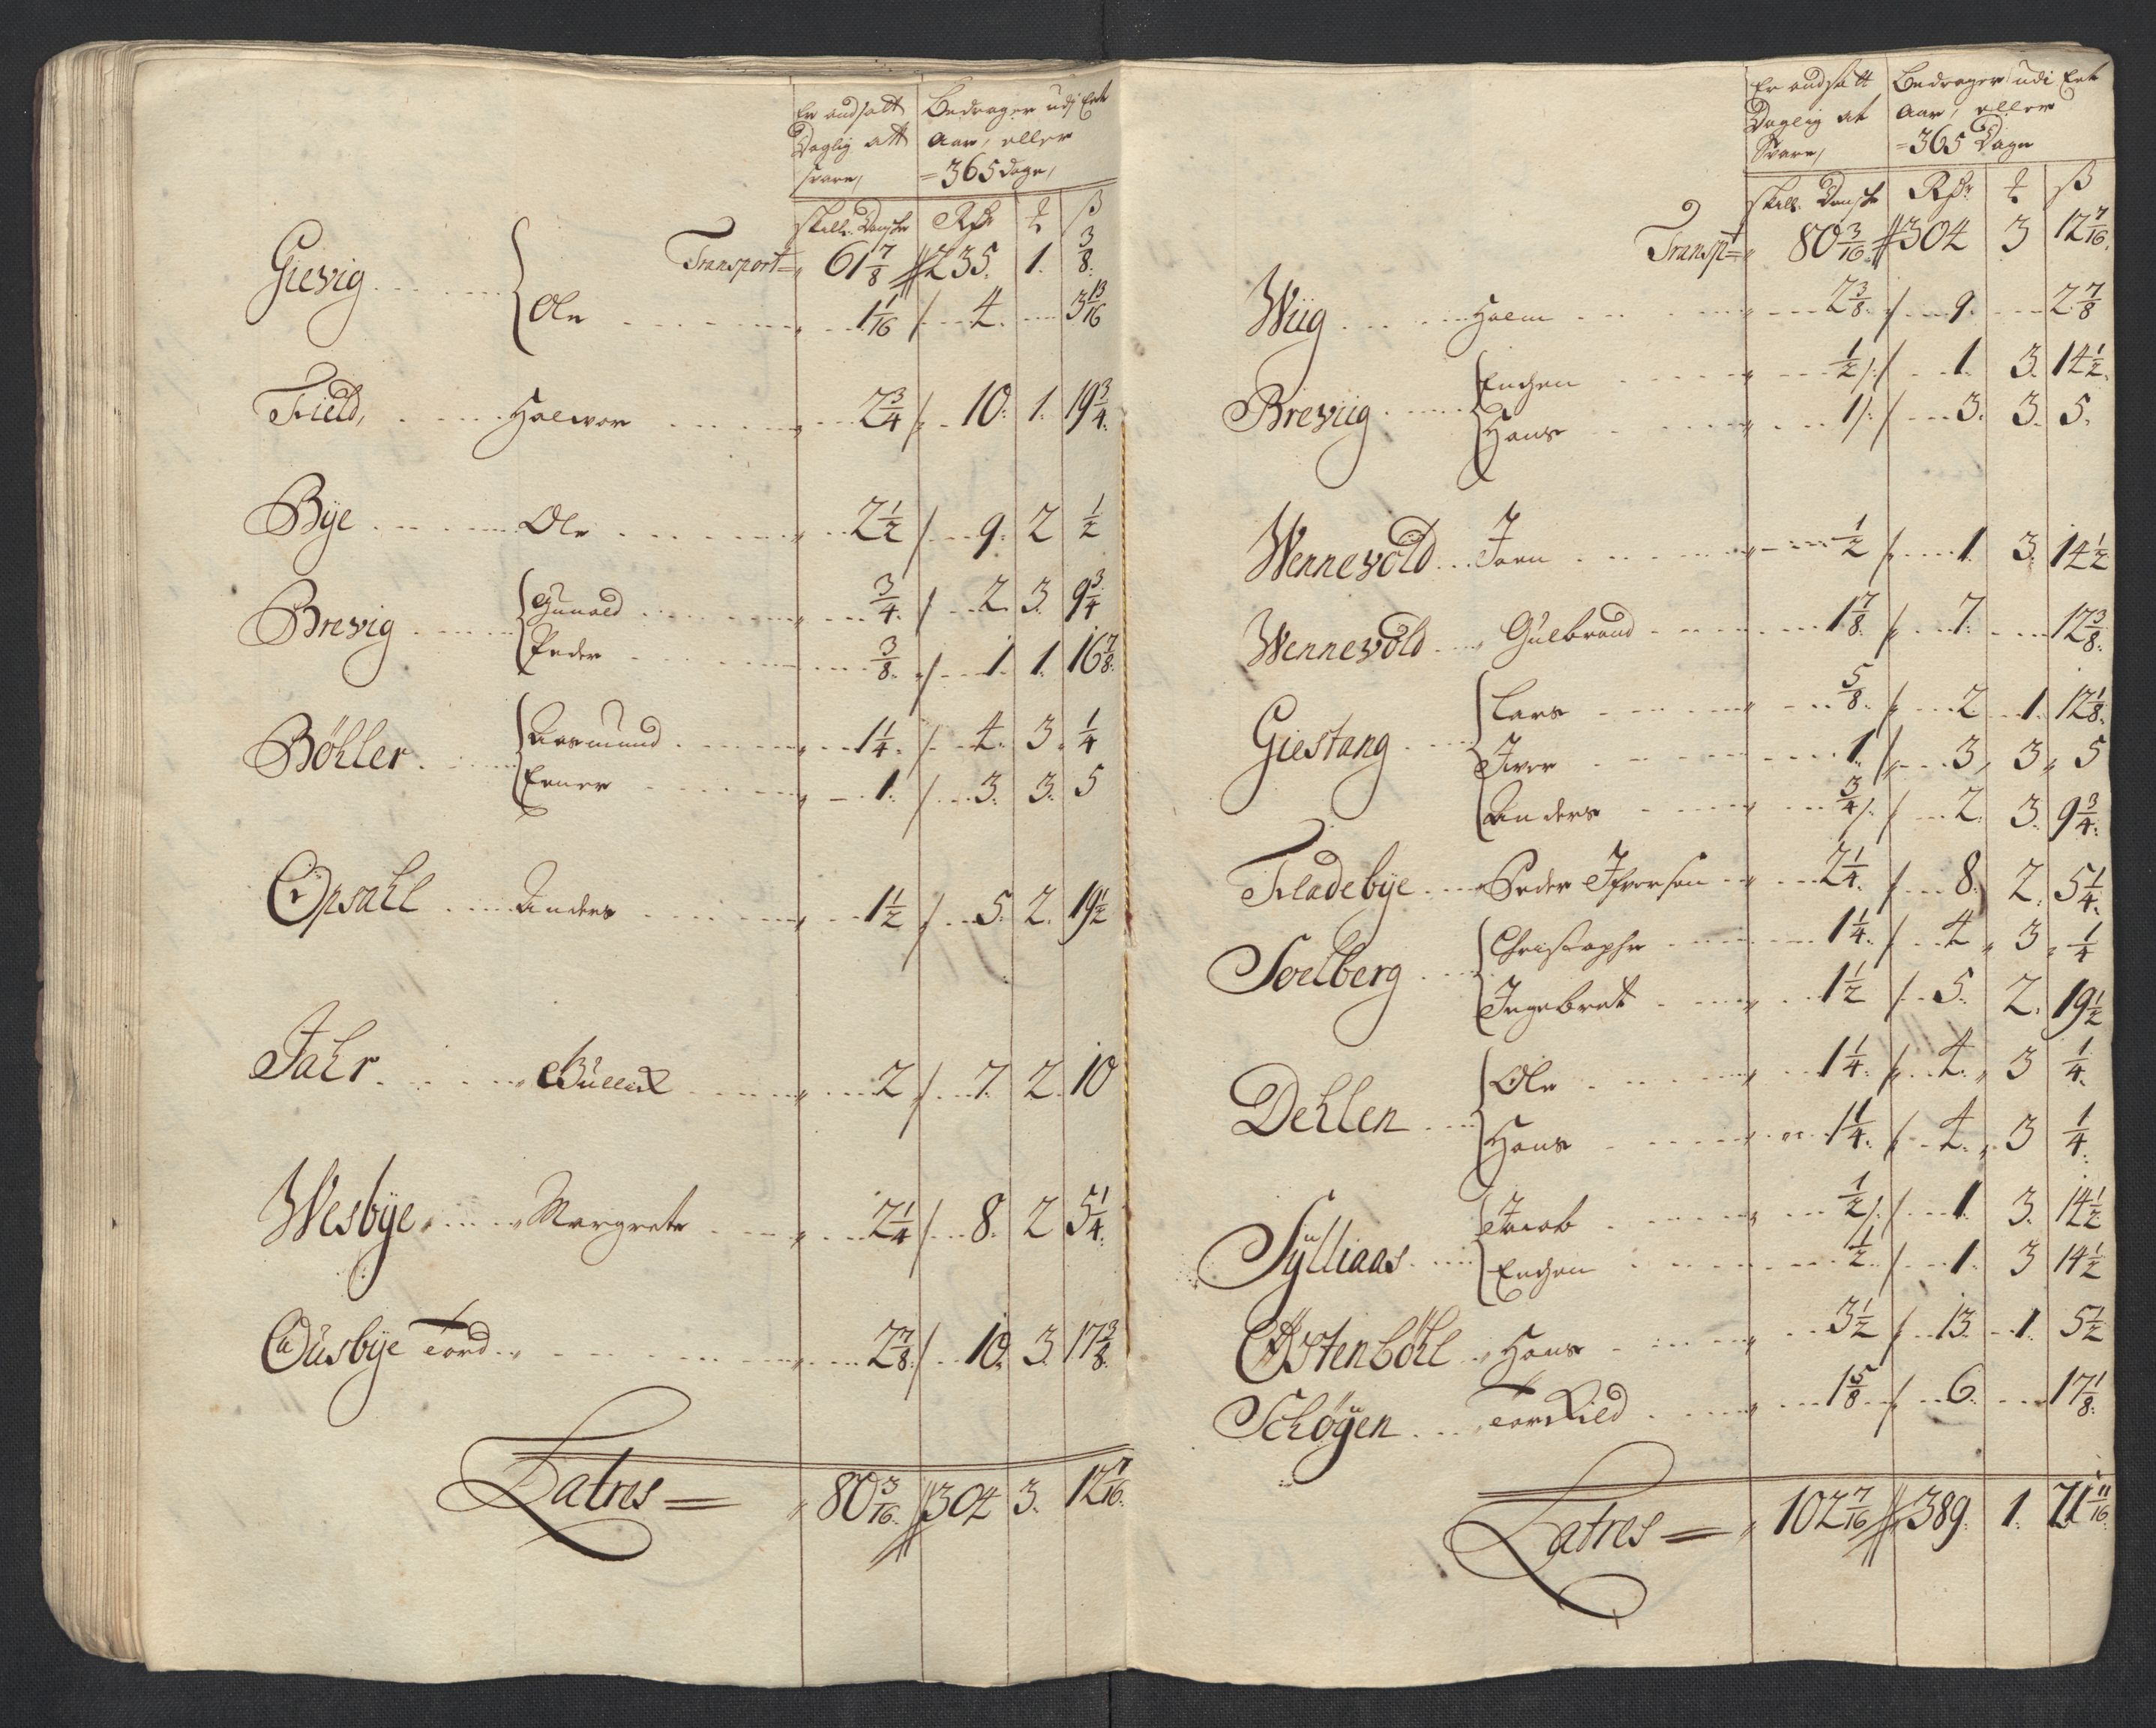 Er andsatt Bedrager udj Eet
Daglig att Aar, eller
svare, =365 dage,
skill. Danske Rdr ₰ ß
Transport= 61 7/8 235. 1. 3/8.
Gievig Ole 1 1/16 4. 3 13/16
Field, Halvor 2 3/4 10. 1. 19 3/4.
Bÿe Ole 2 1/2 9. 2 1/2
Brevig Gunold 3/4. 2. 3. 9 3/4
Peder 3/8. 1. 1. 16 7/8.
Böhler Aasmund 1 1/4. 4. 3. 1/4
Einer 1. 3. 3. 5
Opsahl Anders 1 1/2 5. 2. 19 1/2
Fahr Gullick 2 7. 2. 10
Wesbÿe Margrete 2 1/4 8. 2 5 1/4.
Ousbÿe Tord 2 7/8. 10. 3. 17 3/8.
Latres = 80 3/16. 304 3. 12 7/16.
Er andsatt Bedrager udi Eet
Daglig at Aar, eller
Svare, =365 Dage
skill. Danske Rdr. ₰ ß
Transpt= 80 3/16. 304 3 12 7/16.
Wiig Holm 2 3/8. 9. 2 7/8
Breviig Engen 1/2 1. 3. 14 1/2.
Hans 1 3. 3. 5.
Wennevold Joen 1/2 1. 3. 14 1/2
Wennevold Gulbrand 1 7/8. 7. 12 3/8.
Giestang Lars 5/8. 2 1. 12 1/8.
Iver 1. 3, 3, 5
Anders 3/4 2. 3. 9 3/4.
Fladebÿe Peder Ifversen 2 1/4. 8. 2. 5 1/4.
Soelberg Christopher 1 1/4. 4, 3, 1/4
Ingebret 1 1/2 5. 2. 19 1/2
Dehlen Ole 1 1/4. 4. 3 1/4.
Hans 1 1/4. 4. 3 1/4.
Sÿlliaas Jacob 1/2 1. 3. 14 1/2
Engen 1/2. 1. 3 14 1/2
Østenböhl Hans 3 1/2 13. 1. 5 1/2
Schøÿen Torkild 1 5/8. 6. 17 1/8.
Latres = 102 7/16 389. 1. 21 11/16.